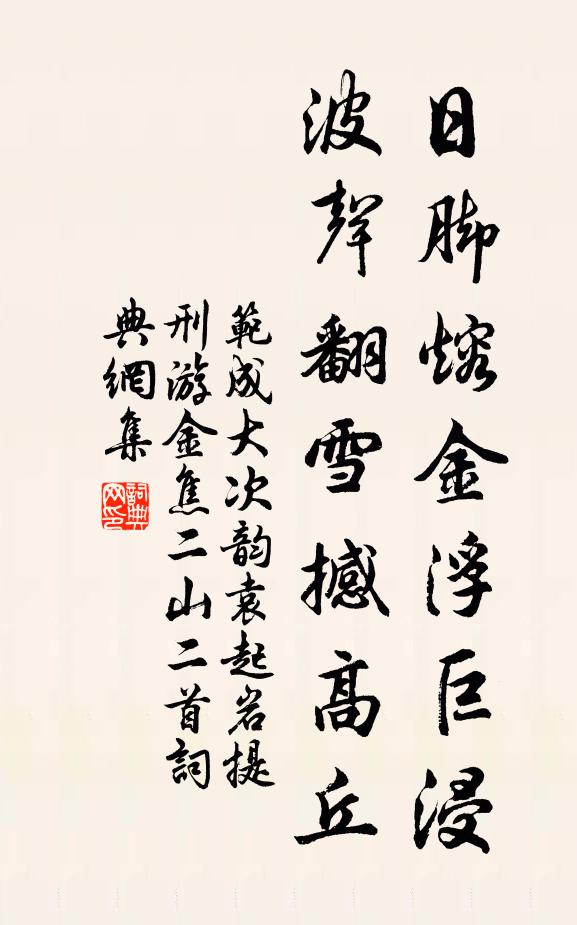 日脚熔金浮巨浸
波聲翻雪撼高丘
範成大次韵袁起岩提
刑游金焦二山二首詞
典網集
詞典
网印